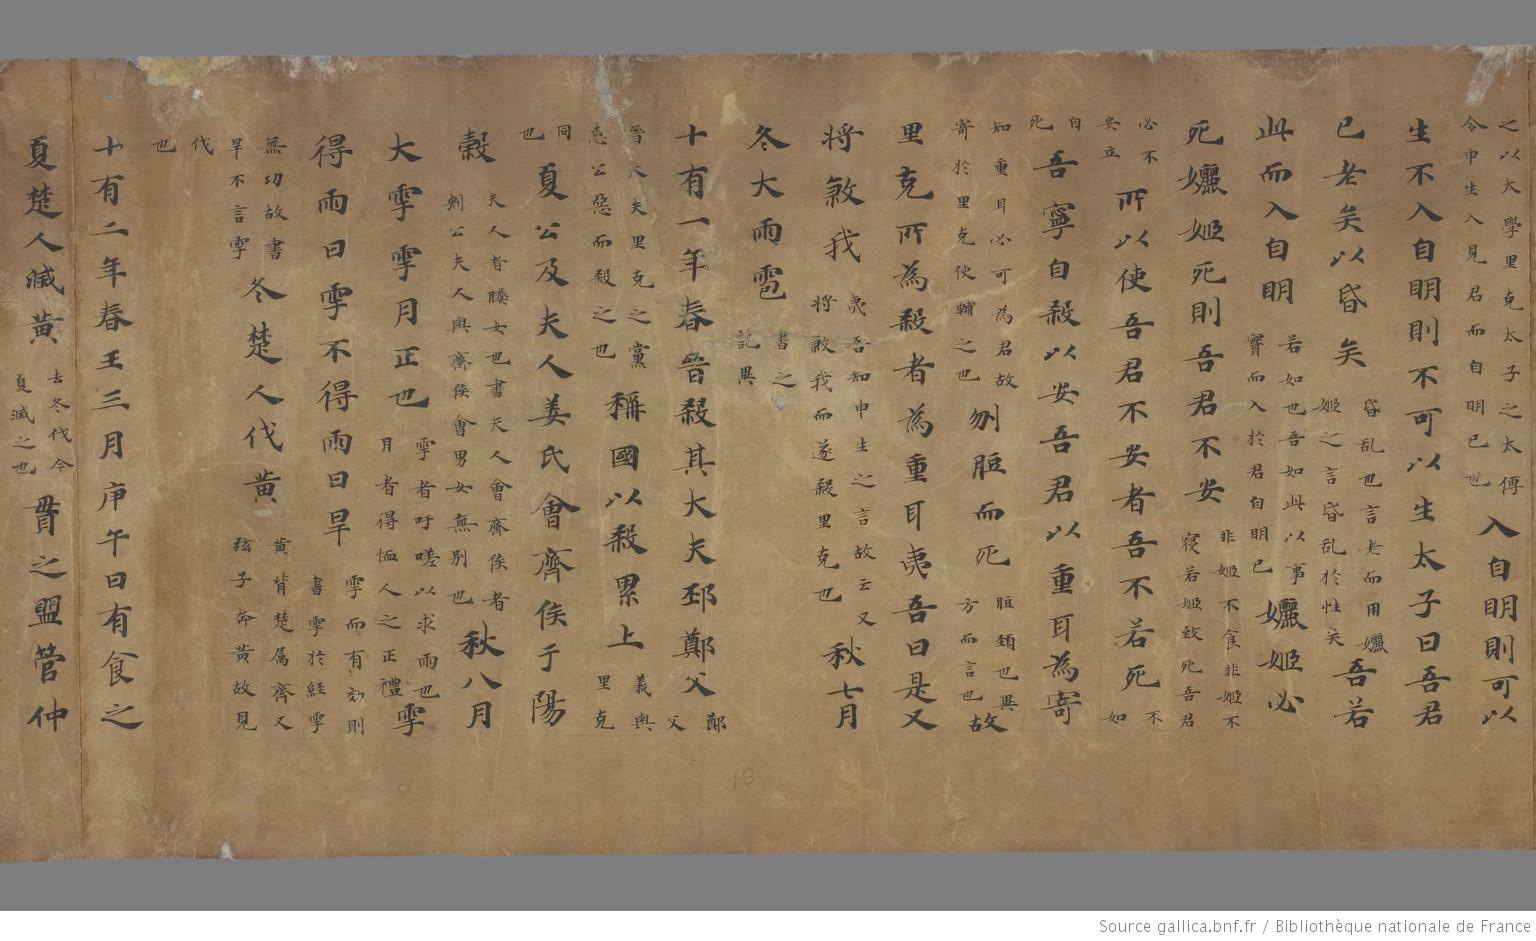 之以太學里克太子之太傅
今申生入見君而自明已也
入自明則可以
生不入自明則不可以生太子曰吾君
已老矣以昏矣
昏乱也言老而用孋
姬之言昏乱於性矣
吾若
此而入自明
若如也吾如此以事
實而入於君自明已
孋姬必
死孋姬死則吾君不安
非姬不食非姬不
寢若姬致死吾君
必不
安立
所以使吾君不安者吾不若死
不
如
自
死
吾寧自殺以安吾君以重耳為寄
知重耳必可為君故
寄於里克使輔之也
刎脰而死
脰頚也異
方而言也
故
里克所為殺者為重耳夷吾曰是又
將煞我
夷吾知申生之言故云又
將煞我而遂殺里克也
秋七月
冬大雨雹
書之
記異
十有一年春晉殺其大夫邳鄭父
鄭
父
晉大夫里克之黨
惠公惡而殺之也
稱國以殺累上
義與
里克
同
也
夏公及夫人姜氏會齊侯于陽
穀
夫人者媵女也書夫人會齊侯者
刾公夫人與齊侯會男女無别也
秋八月
大雩雩月正也
雩者吁嗟以求雨也
月者得恤人之正禮
雩
得雨曰雩不得雨曰旱
雩而有効則
書雩於経雩
無功故書
旱不言雩
冬楚人伐黄
黄背楚属齊又
弦子奔黄故見
伐
也
十有二年春王三月庚午日有食之
夏楚人滅黄
去冬伐今
夏滅之也
貫之盟管仲
Source gallica.bnf.fr / Bibliothèque nationale de France